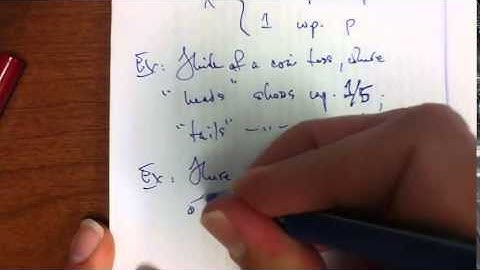 X {
1 wp. p
Ex: Think of a coin toss, where
"heads" shows wp. 1/5;
"tails" —"—
Ex: